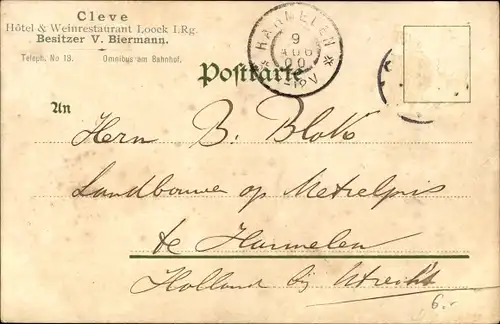 Cleve
Hôtel & Weinrestaurant Loock I.Rg.
Besitzer V. Biermann.
Teleph. No 13. Omnibus am Bahnhof.
HARMELEN
9
AUG
00
Postkarte
An
Hern B. Blok
Landbouwer op Metrelpis
te Harmelen
Holland bij Utrecht
6.-